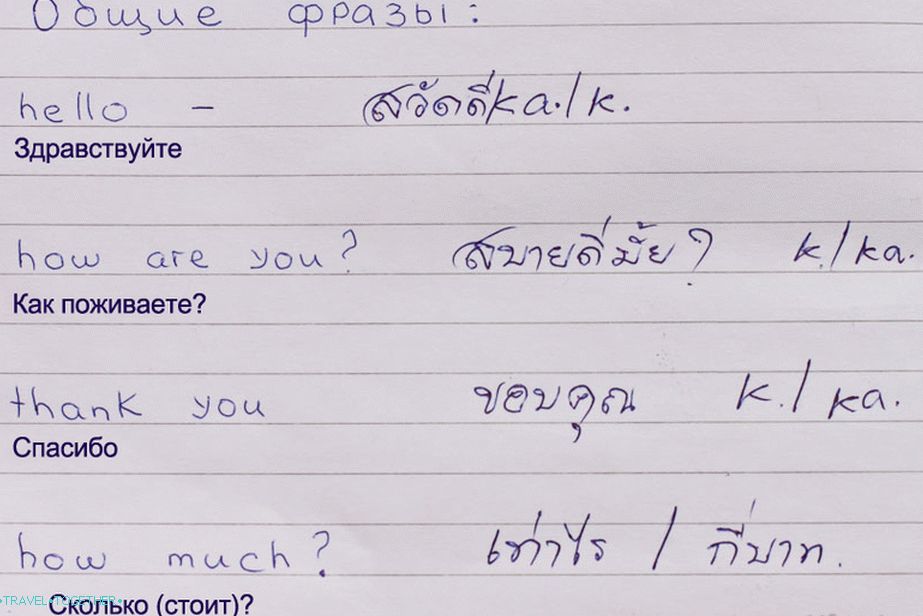 Общие фразы:
hello - สวัสดีka./k.
Здравствуйте
how are you? สบายดีมั้ย? k./ka.
Как поживаете?
thank you ขอบคุณ k./ka.
Спасибо
how much? เท่าไร / กี่บาท.
Сколько (стоит)?
•TRAVEL•TOGETHER•